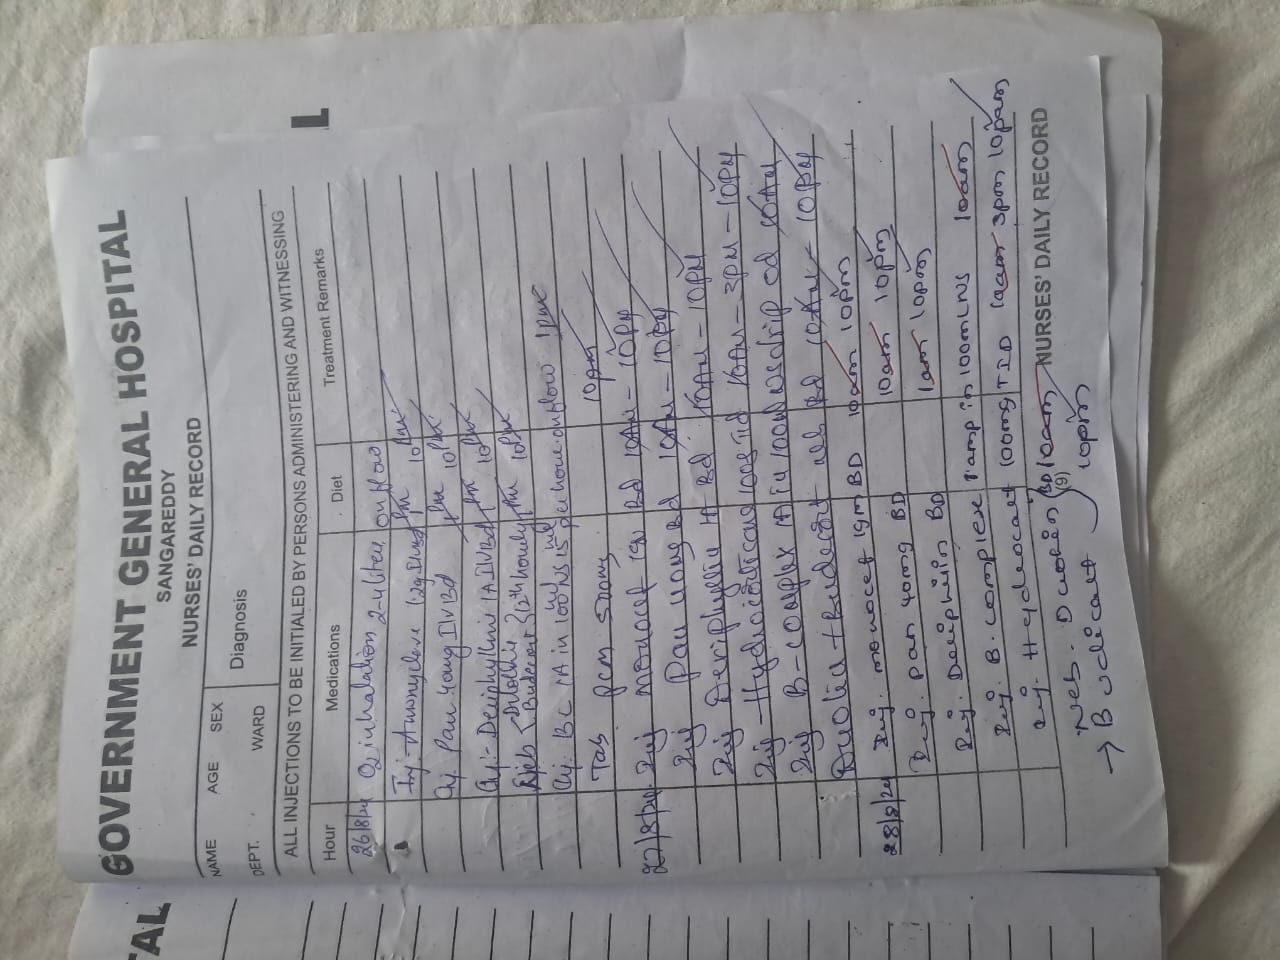 GOVERNMENT GENERAL HOSPITAL
SANGAREDDY
NURSES' DAILY RECORD
NAME AGE SEX
DEPT. WARD Diagnosis
ALL INJECTIONS TO BE INITIALED BY PERSONS ADMINISTERING AND WITNESSING
Hour Medications Diet Treatment Remarks
26/8/24 O2 inhalation 2-4 liter on flow
Inj:- Amoxyclav 1.2g IV Bd 10pm
Inj. Pan 40mg IV Bd 10pm
Inj:- Deriphyllin 1A IV Bd 10pm
Neb Duolin Budecort 12th hourly 10pm
Inj. BC 1A in 100 NS 15 per hour on flow 1pm
Tab PCM 500mg 10pm
27/8/24 Inj Monocef 1g Bd 10AM - 10PM
Inj Pan 40mg Bd 10AM - 10PM
Inj Deriphyllin Bd 10AM - 10PM
Inj - Hydrocort 100 TID 10AM - 3PM - 10PM
Inj B-Complex 1A in 100 NS drip od 10AM
Duolin + Budecort neb Bd 10AM - 10PM
28/8/24 Inj. monocef 1gm BD 10am 10pm
Inj. pan 40mg BD 10am 10pm
Inj. Deriphylin BD 10pm
Inj. B. complex 1amp in 100ml NS 10am
Inj. Hydrocort 100mg TID 10am 3pm 10pm
Neb. Duolin BD 10am
→ Budicort 10pm
(9) NURSES' DAILY RECORD
TAL
L